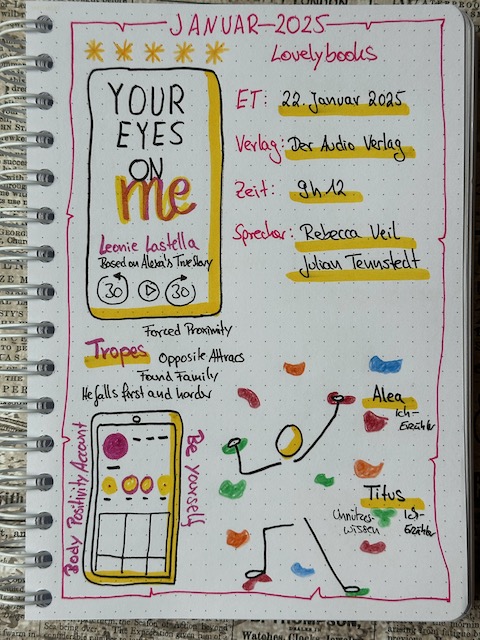 JANUAR 2025
Lovelybooks
YOUR
EYES
ON
me
Leonie Lastella
Based on Alexa's True Story
30 30
ET: 22. Januar 2025
Verlag: Der Audio Verlag
Zeit: 9h 12
Sprecher: Rebecca Veil
Julian Tennstedt
Forced Proximity
Tropes Opposite Attracs
Found Family
He falls first and harder
Body Positivity Account
Be yourself
Alea
Ich-
Erzähler
Titus
Unnützes
wissen
Ich-
Erzähler